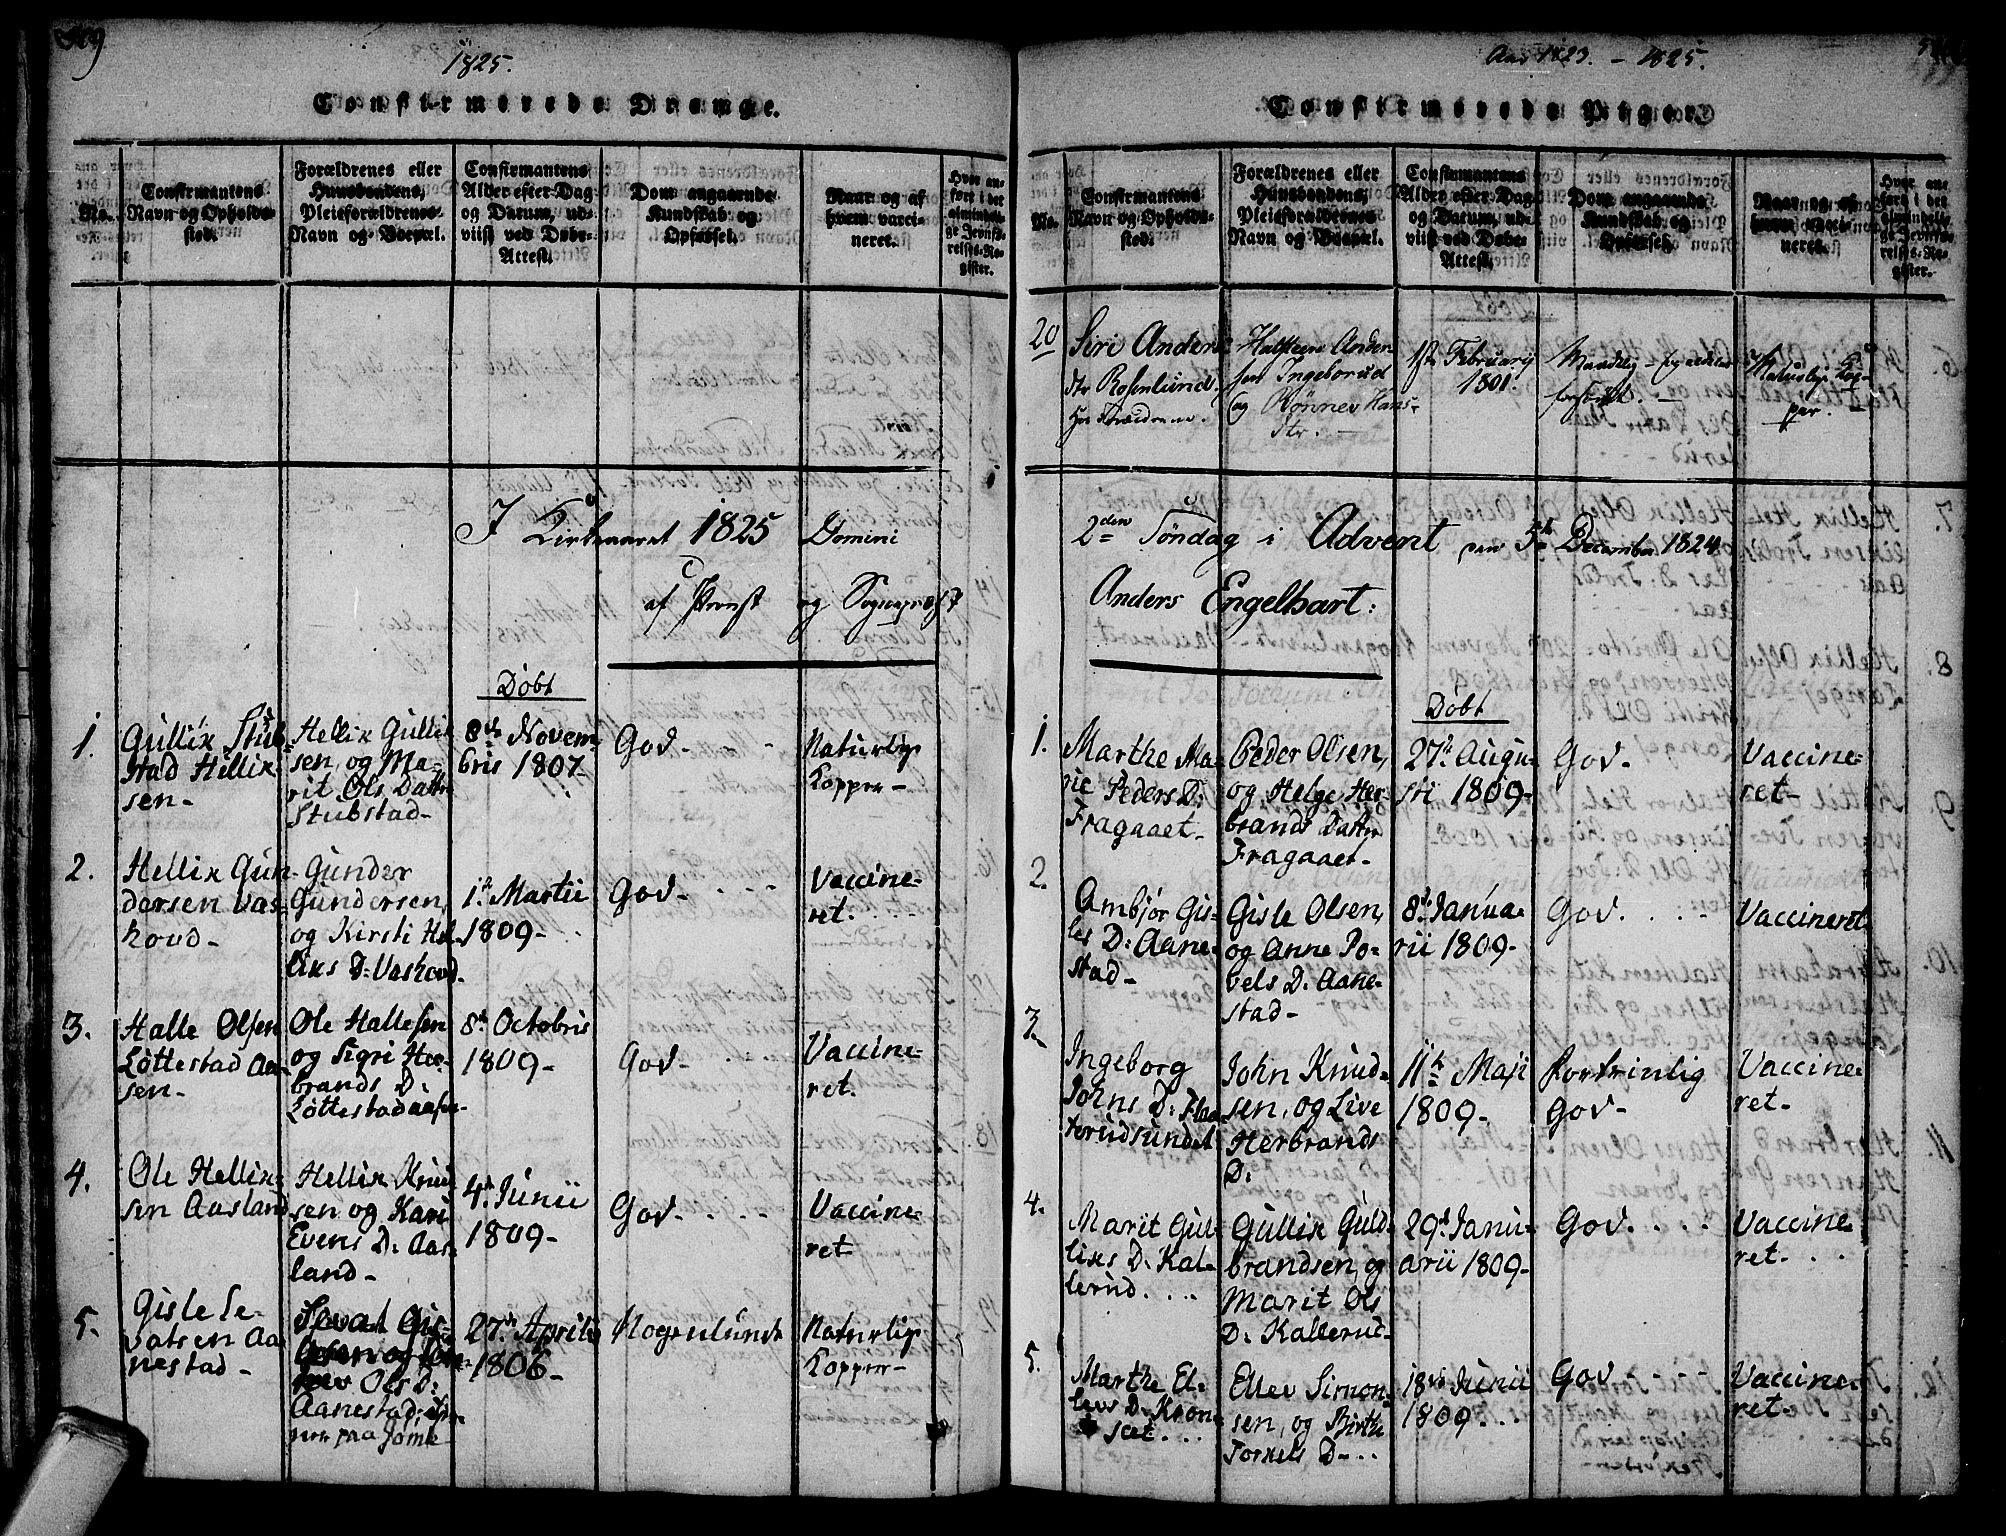 1825.
Confirmerede Drenge.
No.
Confirmantens
Navn og Opholds-
sted.
Forældrenes eller
Huusbondens,
Pleieforældrenes
Navn og Boepæl.
Confirmantens
Alder efter Dag
og Datum, ud-
viist ved Døbe-
Attest.
Dom angaaende
Kundskab og
Opførsel.
Naar og af
hvem vacci-
neret.
Hvor an-
ført i det
almindeli-
ge Jevnfø-
relses-Re-
gister.
I Kirkeaaret 1825 Domini
af Provst og Sognepræst
Døbt
1.
Gullik Stub-
stad Hellik
sen-
Hellik Gullik
sen, og Ma-
rit Ols Datter
Stubstad-
8de Novem-
bris 1807-
God-
Naturlige
Kopper-
2.
Hellik Gun-
dersen Vas-
hovd-
Gunder
Gundersen,
og Kirsti Hel-
liks D: Vashovd
1te Martii
1809-
God-
Vaccine-
ret.
3.
Halle Olsen
Løttestad Aa-
sen-
Ole Hallesen
og Sigri Her-
brands D:
Løttestadaasen
8de Octobris
1809-
God-
Vaccine-
ret.
4.
Ole Hellik-
sen Aasland
Hellik Knud
sen og Kari
Evens D: Aas-
land-
4de Junii
1809-
God-
Vaccine-
ret
5.
Gisle Se-
vatsen Aa
nestad-
Sevat Gis-
Ols D:
Aanestad,
27de Aprilis
1806-
Nogenlunde
Naturlige
Kopper-
Aar 1823. - 1825.
Confirmerede Piger.
No.
Confirmantens
Navn og Opholds-
sted.
Forældrenes eller
Huusbondens,
Pleieforældrenes
Navn og Boepæl.
Confirmantens
Alder efter Dag
og Datum, ud-
viist ved Døbe-
Attest.
Dom angaaende
Kundskab og
Opførsel.
Naar og af
hvem vacci-
neret.
Hvor an-
ført i det
almindeli-
ge Jevnfø-
relses-Re-
gister.
20
Siri Anders
dtr Rosenlund.
Halsteen Anders
sen Ingeborud
og Rønnev Hans-
dtr.
1ste Februarij
1801.
Maadelig -
Naturlige Kop-
per. -
2den Søndag i Advent den 5te December 1824
Anders Engelhart:
Døbt
1.
Marthe Ma-
rie Peders D:
Fragaaet-
Peder Olsen,
og Helge Her-
brands Datter
Fragaaet-
27de Augu-
sti 1809-
God-
Vaccine-
ret-
2.
Ambjør Gis-
les D: Aane-
stad-
Gisle Olsen,
og Anne Po-
vels D: Aane-
stad-
8de Janua-
rii 1809-
God.
Vaccineret
3.
Ingeborg
Johns D: Flaa
torudsundet
John Knud-
sen, og Live
Herbrands
D:
11te Maji
1809-
Fortrinlig
God-
Vaccine-
ret-
4.
Marit Gul-
liks D: Kal-
lerud.
Gullik Guld-
brandsen, og
Marit Ols
D: Kallerud-
29de Janu-
arii 1809-
God.
Vaccine-
ret-
5.
Marthe El-
levs D: Kron-
sæt.
Ellev Simon-
sen, og Birthe
Torkels D-
18de Junii
1809.
God
Vaccine-
ret-